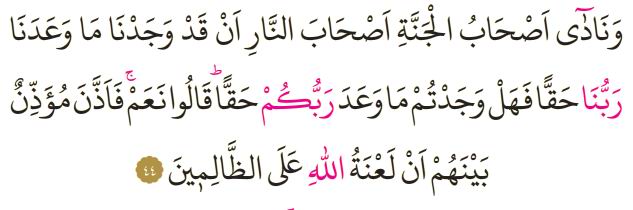 وَنَادٰٓى اَصْحَابُ الْجَنَّةِ اَصْحَابَ النَّارِ اَنْ قَدْ وَجَدْنَا مَا وَعَدَنَا
رَبُّنَا حَقًّا فَهَلْ وَجَدْتُمْ مَا وَعَدَ رَبُّكُمْ حَقًّاۜ قَالُوا نَعَمْۚ فَاَذَّنَ مُؤَذِّنٌ
بَيْنَهُمْ اَنْ لَعْنَةُ اللّٰهِ عَلَى الظَّالِم۪ينَ ٤٤